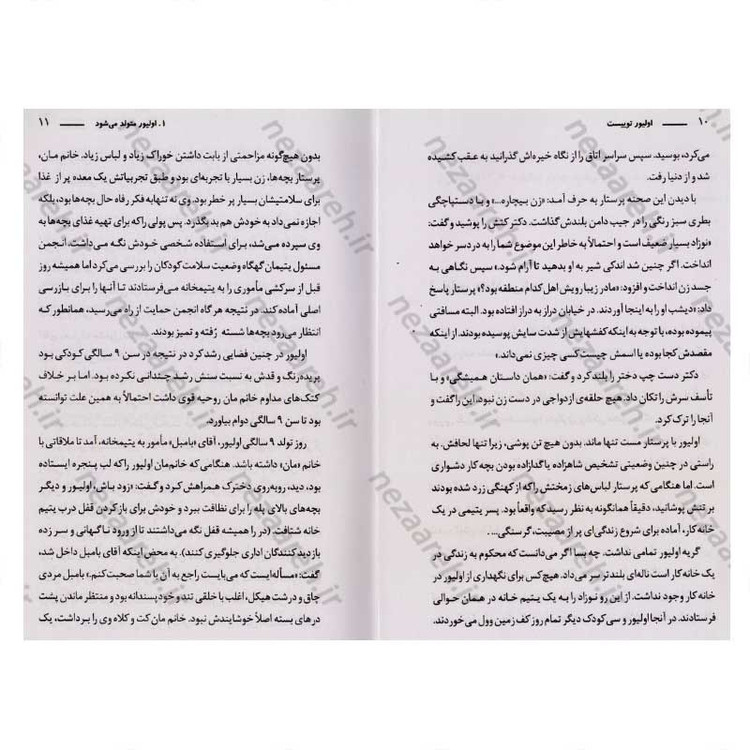 ۱۰ اولیور توییست
می‌کرد، بوسید. سپس سراسر اتاق را از نگاه خیره‌اش گذرانید به عقب کشیده
شد و از دنیا رفت.
با دیدن این صحنه پرستار به حرف آمد: «زن بیچاره...» و با دستپاچگی
بطری سبز رنگی را در جیب دامن بلندش گذاشت. دکتر کتش را پوشید و گفت:
«نوزاد بسیار ضعیف است و احتمالاً به خاطر این موضوع شما را به دردسر خواهد
انداخت. اگر چنین شد اندکی شیر به او بدهید تا آرام شود.» سپس نگاهی به
جسد زن انداخت و افزود: «مادر زیبا رویش اهل کدام منطقه بود؟» پرستار پاسخ
داد: «دیشب او را به اینجا آوردند. در خیابان دراز به دراز افتاده بود. البته مسافتی
پیموده بوده، با توجه به اینکه کفشهایش از شدت سایش پوسیده بودند. از اینکه
مقصدش کجا بوده یا اسمش چیست کسی چیزی نمی‌داند.»
دکتر دست چپ دختر را بلند کرد و گفت: «همان داستان همیشگی» و با
تأسف سرش را تکان داد. هیچ حلقه‌ی ازدواجی در دست زن نبود. این را گفت و
آنجا را ترک کرد.
اولیور با پرستار مست تنها ماند. بدون هیچ تن پوشی، زیرا تنها لحافش. به
راستی در چنین وضعیتی تشخیص شاهزاده یا گدازاده بودن بچه کار دشواری
است. اما هنگامی که پرستار لباس‌های زمختش را که از کهنگی زرد شده بودند
بر تنش پوشانید، دقیقاً همانگونه به نظر رسید که واقعاً بود. پسر یتیمی در یک
خانه کار، آماده برای شروع زندگی‌ای پر از مصیبت، گرسنگی....
گریه اولیور تمامی نداشت. چه بسا اگر می‌دانست که محکوم به زندگی در
یک خانه کار است ناله‌ای بلندتر سر می‌داد. هیچ‌کس برای نگهداری از اولیور در
خانه کار وجود نداشت. از این رو نوزاد را به یک یتیم خانه در همان حوالی
فرستادند. در آنجا اولیور و سی کودک دیگر تمام روز کف زمین وول می‌خوردند.
۱. اولیور متولد می‌شود ۱۱
بدون هیچ‌گونه مزاحمتی از بابت داشتن خوراک زیاد و لباس زیاد. خانم مان،
پرستار بچه‌ها، زن بسیار با تجربه‌ای بود و طبق تجربیاتش یک معده پر از غذا
برای سلامتیشان بسیار پر خطر بود. وی نه تنها به فکر رفاه حال بچه‌ها بود، بلکه
اجازه نمی‌داد به خودش هم بد بگذرد. پس پولی را که برای تهیه غذای بچه‌ها به
وی سپرده می‌شد، برای استفاده شخصی خودش نگه می‌داشت. انجمن
مسئول یتیمان گهگاه وضعیت سلامت کودکان را بررسی می‌کرد اما همیشه روز
قبل از سرکشی مأموری را به یتیمخانه می‌فرستادند تا آنها را برای بازرسی
اصلی آماده کند. در نتیجه هر گاه انجمن حمایت از راه می‌رسید، همانطور که
انتظار می‌رود بچه‌ها شسته رُفته و تمیز بودند.
اولیور در چنین فضایی رشد کرد در نتیجه در سن ۹ سالگی کودکی بود
پریده‌رنگ و قدش به نسبت سنش رشد چندانی نکرده بود. اما بر خلاف
کتک‌های مداوم خانم مان روحیه قوی داشت احتمالاً به همین علت توانسته
بود تا سن ۹ سالگی دوام بیاورد.
روز تولد ۹ سالگی اولیور، آقای «بامبل» مأمور به یتیمخانه، آمد تا ملاقاتی با
خانم «مان» داشته باشد. هنگامی که خانم‌مان اولیور را که لب پنجره ایستاده
بود، دید، رو به روی دخترک همراهش کرد و گفت: «زود باش، اولیور و دیگر
بچه‌های بالای پله را برای نظافت ببر» و خودش برای باز کردن قفل درب یتیم
خانه شتافت. (در را همیشه قفل نگه می‌داشتند تا از ورود ناگهانی و سر زده
بازدید کنندگان اداری جلوگیری کنند). به محض اینکه آقای بامبل داخل شد،
گفت: «مسأله‌ایست که می‌بایست راجع به آن با شما صحبت کنم.» بامبل مردی
چاق و درشت هیکل، اغلب با خلقی تند و خودپسندانه بود و منتظر ماندن پشت
درهای بسته اصلاً خوشایندش نبود. خانم مان کت و کلاه وی را برداشت، یک
nezaareh.ir